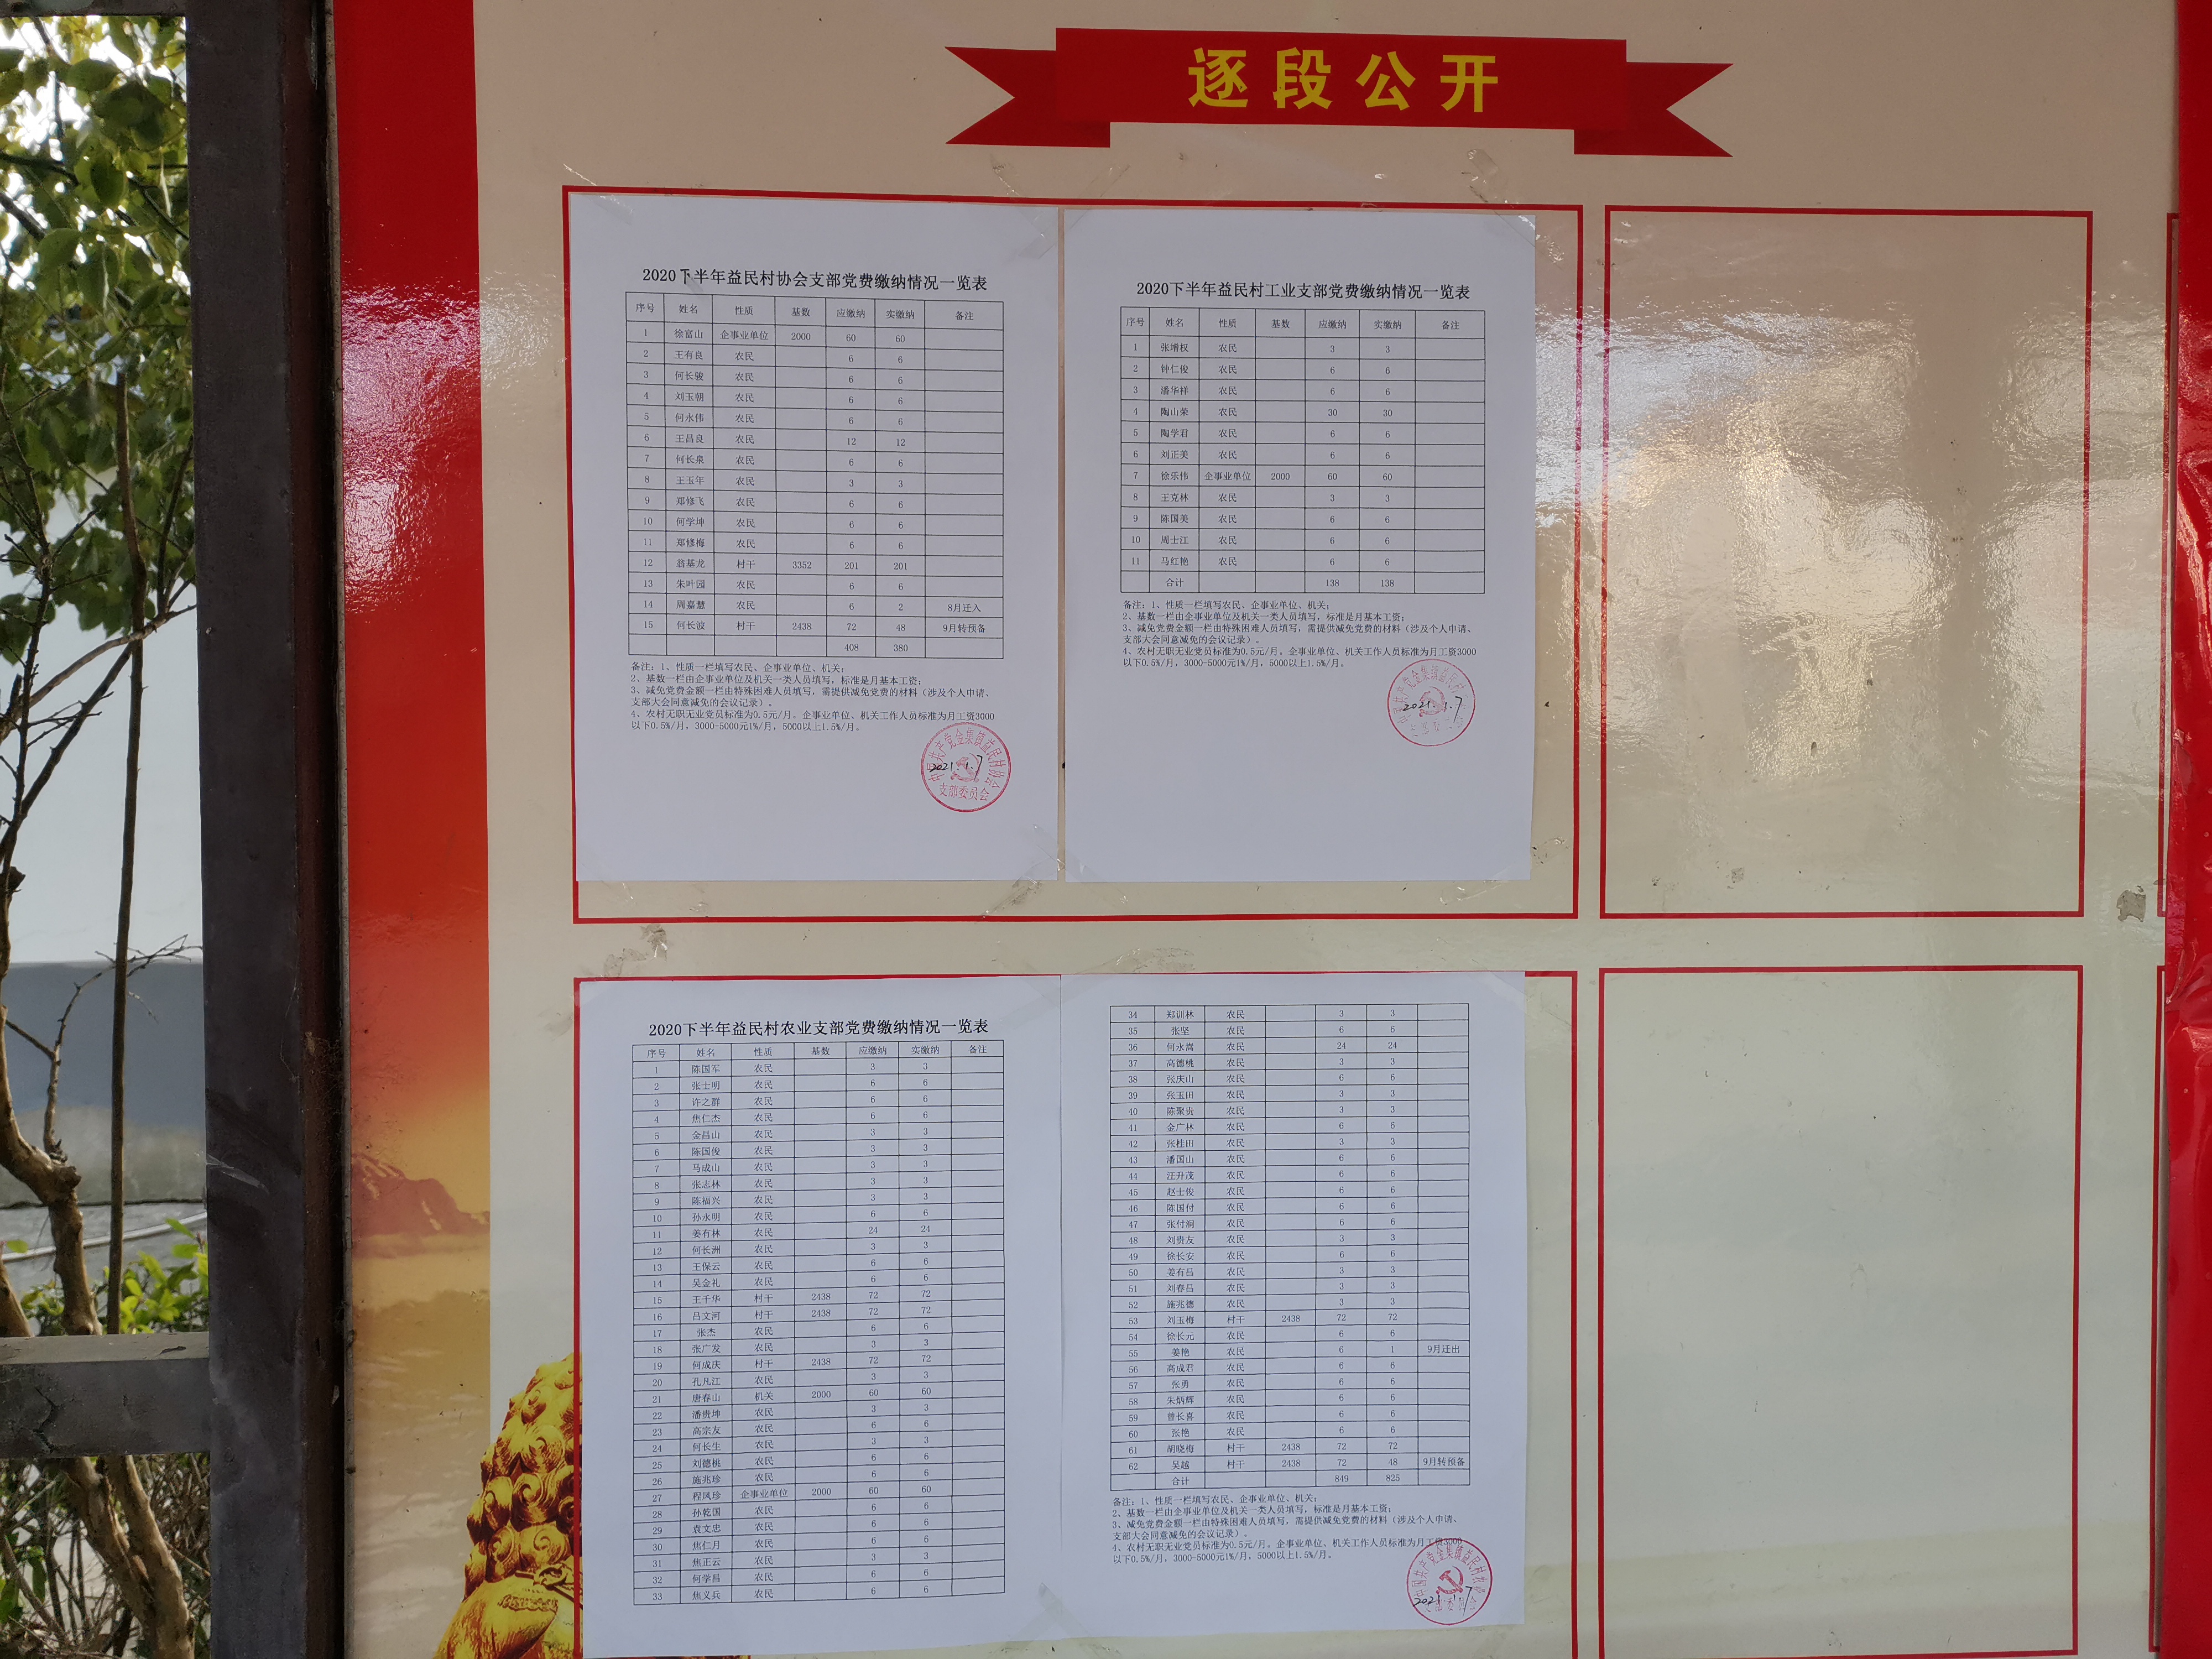 逐段公开
2020下半年益民村协会支部党费缴纳情况一览表
序号 姓名 性质 基数 应缴纳 实缴纳 备注
1 徐富山 企事业单位 2000 60 60
2 王有良 农民 6 6
3 何长骏 农民 6 6
4 刘玉朝 农民 6 6
5 何永伟 农民 6 6
6 王昌良 农民 12 12
7 何长泉 农民 6 6
8 王玉年 农民 3 3
9 郑修飞 农民 6 6
10 何学坤 农民 6 6
11 郑修梅 农民 6 6
12 翁基龙 村干 3352 201 201
13 朱叶园 农民 6 6
14 周嘉慧 农民 6 2 8月迁入
15 何长波 村干 2438 72 48 9月转预备
408 380
备注：1、性质一栏填写农民、企事业单位、机关；
2、基数一栏由企事业单位及机关一类人员填写，标准是月基本工资；
3、减免党费金额一栏由特殊困难人员填写，需提供减免党费的材料（涉及个人申请、
支部大会同意减免的会议记录）。
4、农村无职无业党员标准为0.5元/月。企事业单位、机关工作人员标准为月工资3000
以下0.5%/月，3000-5000元1%/月，5000以上1.5%/月。
中国共产党金集镇益民村协会
2021.1.7
支部委员会
2020下半年益民村工业支部党费缴纳情况一览表
序号 姓名 性质 基数 应缴纳 实缴纳 备注
1 张增权 农民 3 3
2 钟仁俊 农民 6 6
3 潘华祥 农民 6 6
4 陶山荣 农民 30 30
5 陶学君 农民 6 6
6 刘正美 农民 6 6
7 徐乐伟 企事业单位 2000 60 60
8 王克林 农民 3 3
9 陈国美 农民 6 6
10 周士江 农民 6 6
11 马红艳 农民 6 6
合计 138 138
备注：1、性质一栏填写农民、企事业单位、机关；
2、基数一栏由企事业单位及机关一类人员填写，标准是月基本工资；
3、减免党费金额一栏由特殊困难人员填写，需提供减免党费的材料（涉及个人申请、
支部大会同意减免的会议记录）。
4、农村无职无业党员标准为0.5元/月。企事业单位、机关工作人员标准为月工资3000
以下0.5%/月，3000-5000元1%/月，5000以上1.5%/月。
2021.1.7
2020下半年益民村农业支部党费缴纳情况一览表
序号 姓名 性质 基数 应缴纳 实缴纳 备注
1 陈国军 农民 3 3
2 张士明 农民 6 6
3 许之群 农民 6 6
4 焦仁杰 农民 6 6
5 金昌山 农民 3 3
6 陈国俊 农民 3 3
7 马成山 农民 3 3
8 张志林 农民 3 3
9 陈福兴 农民 3 3
10 孙永明 农民 6 6
11 姜有林 农民 24 24
12 何长洲 农民 3 3
13 王保云 农民 6 6
14 吴金礼 农民 6 6
15 王千华 村干 2438 72 72
16 吕文河 村干 2438 72 72
17 张杰 农民 6 6
18 张广发 农民 3 3
19 何成庆 村干 2438 72 72
20 孔凡江 农民 3 3
21 唐春山 机关 2000 60 60
22 潘贵坤 农民 3 3
23 高宗友 农民 6 6
24 何长生 农民 3 3
25 刘德桃 农民 6 6
26 施兆珍 农民 6 6
27 程凤珍 企事业单位 2000 60 60
28 孙乾国 农民 6 6
29 袁文忠 农民 6 6
30 焦仁月 农民 6 6
31 焦正云 农民 3 3
32 何学昌 农民 6 6
33 焦义兵 农民 6 6
34 郑训林 农民 3 3
35 张坚 农民 6 6
36 何永嵩 农民 24 24
37 高德桃 农民 3 3
38 张庆山 农民 6 6
39 张玉田 农民 3 3
40 陈聚贵 农民 3 3
41 金广林 农民 6 6
42 张桂田 农民 3 3
43 潘国山 农民 6 6
44 汪升茂 农民 6 6
45 赵士俊 农民 6 6
46 陈国付 农民 6 6
47 张付涧 农民 6 6
48 刘贵友 农民 3 3
49 徐长安 农民 6 6
50 姜有昌 农民 3 3
51 刘春昌 农民 3 3
52 施兆德 农民 3 3
53 刘玉梅 村干 2438 72 72
54 徐长元 农民 6 6
55 姜艳 农民 6 1 9月迁出
56 高成君 农民 6 6
57 张勇 农民 6 6
58 朱炳辉 农民 6 6
59 曾长喜 农民 6 6
60 张艳 农民 6 6
61 胡晓梅 村干 2438 72 72
62 吴越 村干 2438 72 48 9月转预备
合计 849 825
备注：1、性质一栏填写农民、企事业单位、机关；
2、基数一栏由企事业单位及机关一类人员填写，标准是月基本工资；
3、减免党费金额一栏由特殊困难人员填写，需提供减免党费的材料（涉及个人申请、
支部大会同意减免的会议记录）。
4、农村无职无业党员标准为0.5元/月。企事业单位、机关工作人员标准为月工资3000
以下0.5%/月，3000-5000元1%/月，5000以上1.5%/月。
2021.1.7